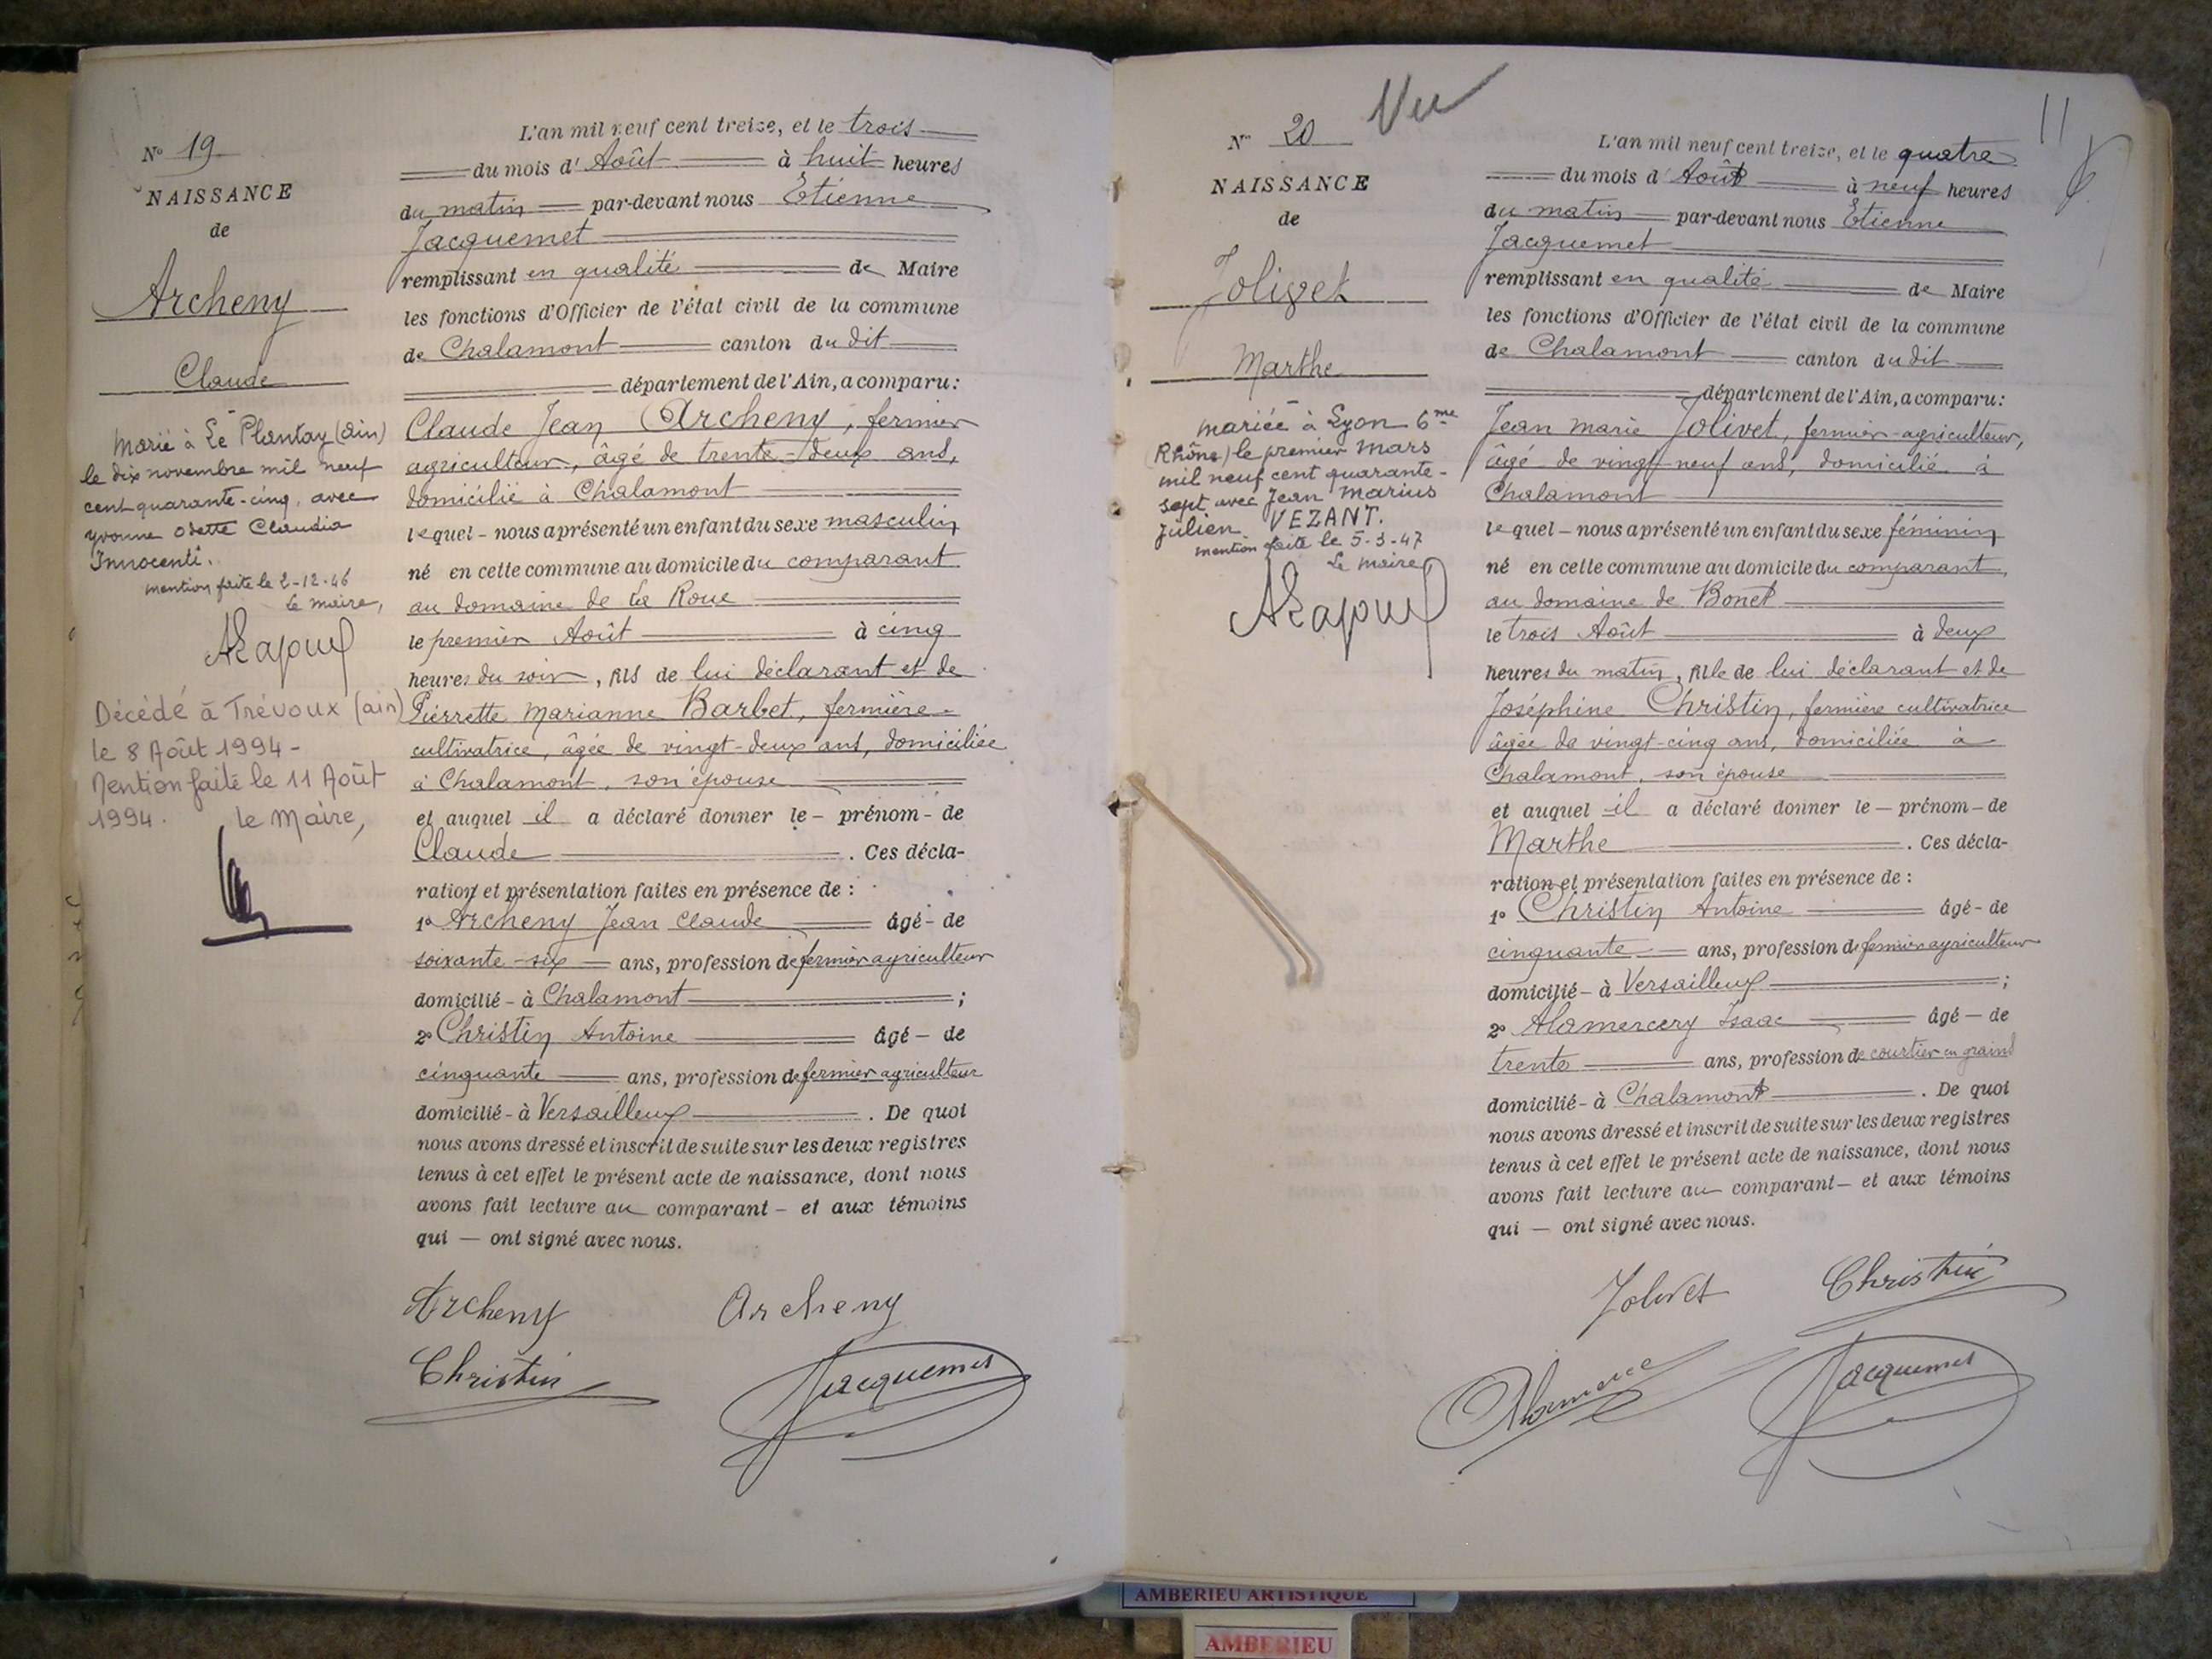 Nº 19
NAISSANCE
de
Archeny
Claude
Marié à Le Plantay (Ain)
le dix novembre mil neuf
cent quarante-cinq, avec
Yvonne Odette Claudia
Innocenti.
mention faite le 2-12-46
Le maire,
Décédé à Trévoux (ain)
le 8 Août 1994 -
Mention faite le 11 Août
1994. Le Maire,
L'an mil neuf cent treize, et le trois
du mois d'Août à huit heures
du matin par-devant nous Etienne
Jacquemet
remplissant en qualité de Maire
les fonctions d'Officier de l'état civil de la commune
de Chalamont canton du dit
département de l'Ain, a comparu :
Claude Jean Archeny, fermier
agriculteur, âgé de trente-deux ans,
domicilié à Chalamont
lequel - nous a présenté un enfant du sexe masculin
né en cette commune au domicile du comparant
au domaine de La Roue
le premier Août à cinq
heures du soir, fils de lui déclarant et de
Pierrette Marianne Barbet, fermière-
cultivatrice, âgée de vingt-deux ans, domiciliée
à Chalamont, son épouse
et auquel il a déclaré donner le - prénom - de
Claude . Ces décla-
ration et présentation faites en présence de :
1º Archeny Jean Claude âgé - de
soixante-six ans, profession de fermier agriculteur
domicilié - à Chalamont ;
2º Christin Antoine âgé - de
cinquante ans, profession de fermier agriculteur
domicilié - à Versailleux . De quoi
nous avons dressé et inscrit de suite sur les deux registres
tenus à cet effet le présent acte de naissance, dont nous
avons fait lecture au comparant - et aux témoins
qui — ont signé avec nous.
Archeny Archeny
Christin Jacquemet
Nº 20 Vu
NAISSANCE
de
Jolivet
Marthe
mariée à Lyon 6me
(Rhône) le premier Mars
mil neuf cent quarante-
sept avec Jean Marius
Julien VEZANT.
mention faite le 5-3-47
Le maire,
11
L'an mil neuf cent treize, et le quatre
du mois d'Août à neuf heures
du matin par-devant nous Etienne
Jacquemet
remplissant en qualité de Maire
les fonctions d'Officier de l'état civil de la commune
de Chalamont canton du dit
département de l'Ain, a comparu :
Jean Marie Jolivet, fermier-agriculteur,
âgé de vingt-neuf ans, domicilié à
Chalamont
lequel - nous a présenté un enfant du sexe féminin
né en cette commune au domicile du comparant,
au domaine de Bonet
le trois Août à deux
heures du matin, fille de lui déclarant et de
Joséphine Christin, fermière cultivatrice
âgée de vingt-cinq ans, domiciliée à
Chalamont, son épouse
et auquel il a déclaré donner le — prénom - de
Marthe . Ces décla-
ration et présentation faites en présence de :
1º Christin Antoine âgé - de
cinquante ans, profession de fermier agriculteur
domicilié - à Versailleux ;
2º Alamercery Isaac âgé — de
trente ans, profession de courtier en grains
domicilié - à Chalamont . De quoi
nous avons dressé et inscrit de suite sur les deux registres
tenus à cet effet le présent acte de naissance, dont nous
avons fait lecture au comparant — et aux témoins
qui — ont signé avec nous.
Jolivet Christin
Jacquemet
AMBERIEU ARTISTIQUE
AMBERIEU